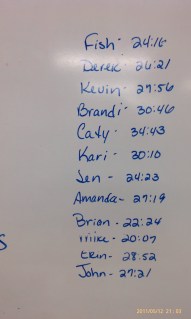 Fish - 24:16
Derek - 26:21
Kevin - 27:56
Brandi - 30:46
Caty - 34:43
Kari - 30:10
Jen - 24:23
Amanda - 27:19
Brian - 22:24
mike - 20:07
Erin - 28:52
John - 27:21
s
2011/05/12